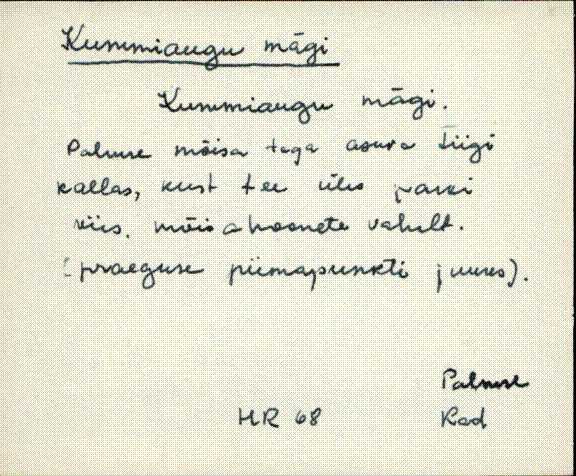 Kummiaugu mägi
Kummiaugu mägi.
Palmse mõisa taga asuva tiigi
kallas, kust tee üles parki
viis. mõisahoonete vahelt.
(praeguse piimapunkti juures).
Palmse
HR 68 Kad